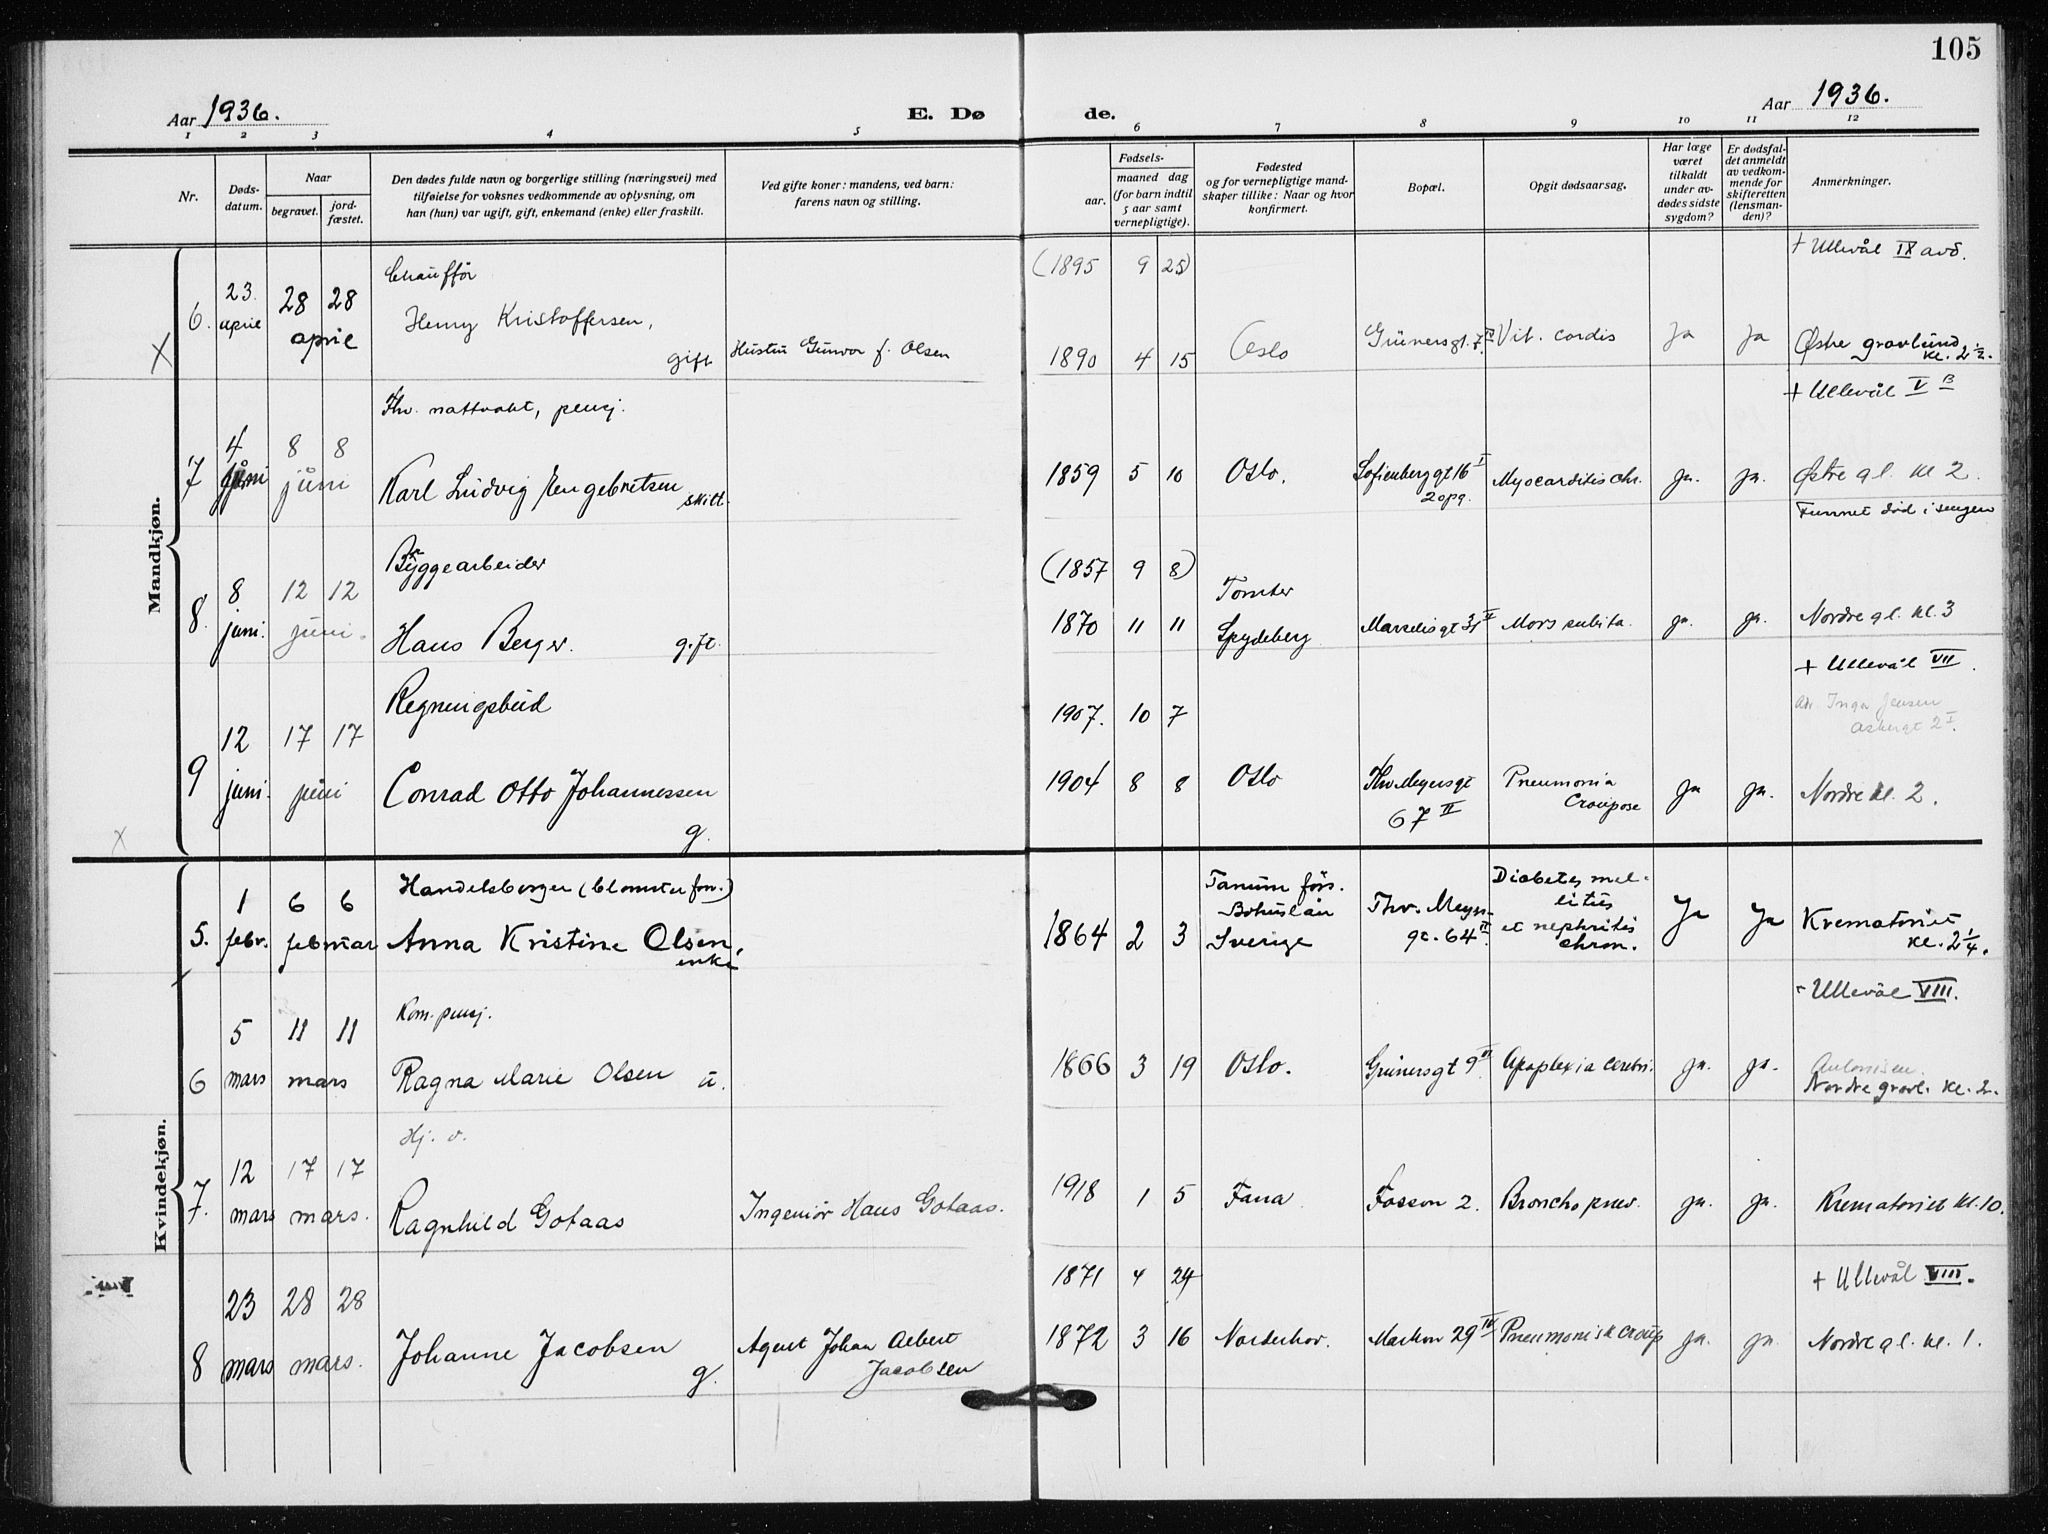 105
Aar 1936.
E. Dø de.
Aar 1936.
1 2 3 4 5 6 7 8 9 10 11 12
Nr.
Døds-
datum.
Naar
begravet.
jord-
fæstet.
Den dødes fulde navn og borgerlige stilling (næringsvei) med
tilføielse for voksnes vedkommende av oplysning, om
han (hun) var ugift, gift, enkemand (enke) eller fraskilt.
Ved gifte koner: mandens, ved barn:
farens navn og stilling.
Fødsels-
aar.
maaned dag
(for barn indtil
5 aar samt
vernepligtige).
Fødested
og for vernepligtige mand-
skaper tillike: Naar og hvor
konfirmert.
Bopæl.
Opgit dødsaarsag.
Har læge
været
tilkaldt
under av-
dødes sidste
sygdom?
Er dødsfal-
det anmeldt
av vedkom-
mende for
skifteretten
(lensman-
den)?
Anmerkninger.
Mandkjøn.
(1895 9 25)
+ Ullevål IX avd.
Chauffør
6. 23. april 28 28 april
Henry Kristoffersen,
gift
Hustru Gunvor f. Olsen
1890 4 15 Oslo Grünersgt. 7 Vit. cordis Ja Ja Østre gravlund, kl. 2 1/2.
X
+ Ullevål V B
Fhv. nattvakt, pensj.
7 4 juni 8 8 juni
Karl Ludvig Engebretsen
skilt.
1859 5 10 Oslo. Sofienberggt 16 I
2 opg.
Myocarditis chr. ja. ja. Østre gl. kl 2.
Funnet død i sengen
(1857 9 8)
Byggearbeider
8. 8 juni. 12 12 juni.
Hans Berger. gift.
1870 11 11 Tomter
Spydeberg Marselisgt 31 II Mors subita. ja. ja. Nordre gl. kl. 3
+ Ullevål VII.
Regningsbud
1907. 10 7
Adr. Inga Jensen
Asbergt 2 I.
9 12 juni. 17 17 juni
Conrad Otto Johannessen
g.
1904 8 8 Oslo Thv. Meyersgt
67 II
Pneumonia
Croupose
ja ja. Nordre kl. 2.
X
Kvindekjøn.
Handelsborger (blomsterforr.)
5. 1 febr. 6 6 februar
Anna Kristine Olsen,
enke
1864 2 3 Tanum förs.
Bohuslän
Sverige
Thv. Meyers-
gt. 64 II.
Diabetes mel-
litus
et nephritis
chron.
Ja Ja Krematoriet
kl. 2 1/4.
+ Ullevål VIII.
Kom. pensj.
6 5 mars 11 11 mars
Ragna Marie Olsen u.
1866 3 19 Oslo. Grünersgt 9 II Apoplexia cerebri. ja. ja.
Nordre gravl. kl. 2.
Hj. v.
7. 12 mars 17 17 mars.
Ragnhild Gotaas
Ingeniør Hans Gotaas.
1918 1 5 Fana Fossvn 2. Bronchopnev. ja. ja. Krematoriet kl. 10.
1871 4 24
+ Ullevål VIII.
8 23 mars 28 28 mars.
Johanne Jacobsen
g.
Agent Johan Albert
Jacobsen
1872 3 16 Norderhov. Markvn 29 IV Pneumoni croup ja. ja. Nordre gl. kl. 1.